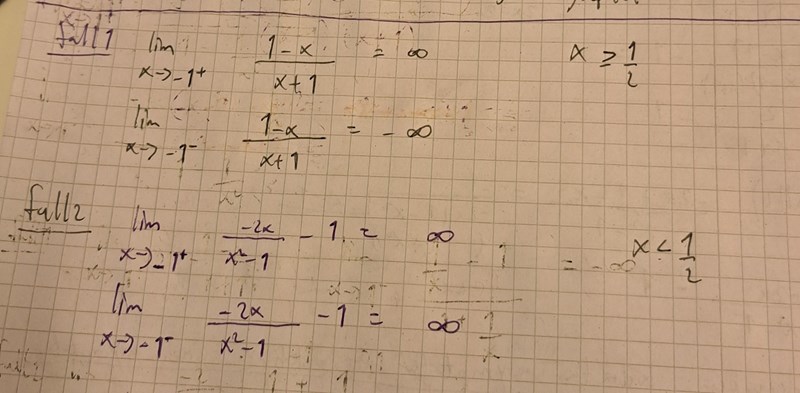 Fall 1 lim x→-1⁺ (1-x)/(x+1) = ∞ x ≥ 1/2
lim x→-1⁻ (1-x)/(x+1) = -∞
Fall 2 lim x→-1⁺ (-2x)/(x²-1) - 1 = ∞ x < 1/2
lim x→-1⁻ (-2x)/(x²-1) - 1 = ∞